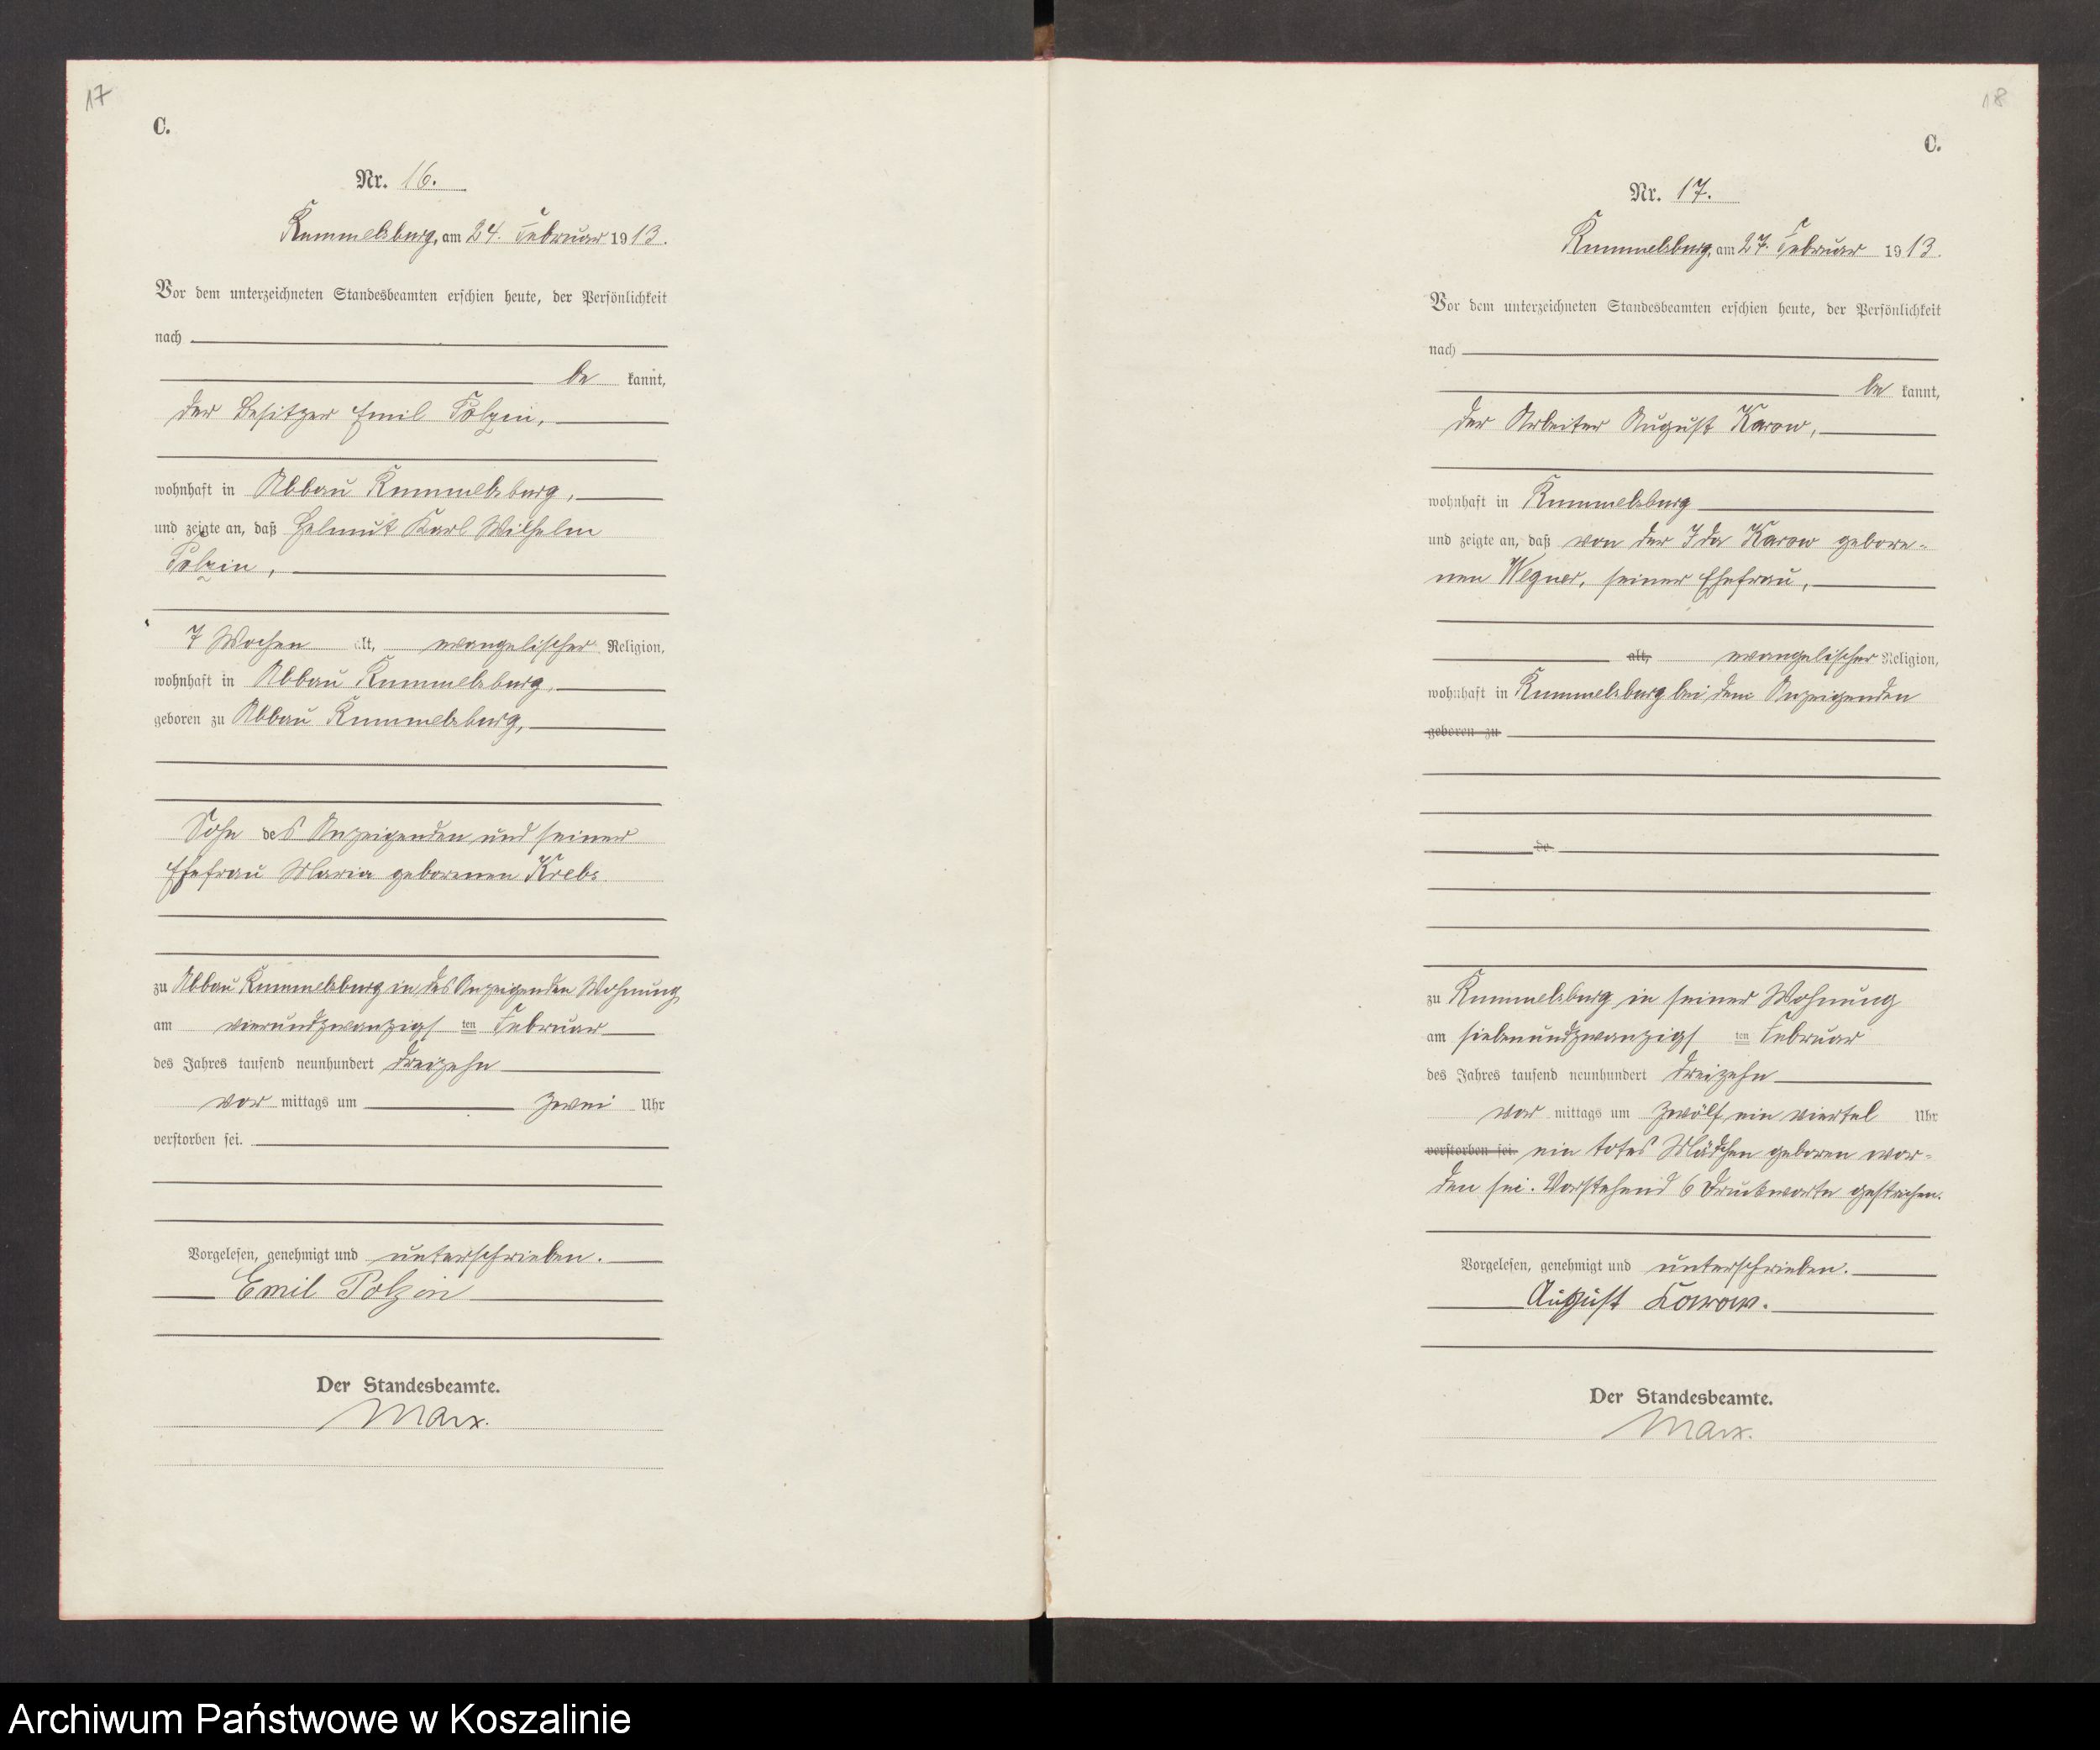 17
C.
Nr. 16.
Rummelsburg, am 24. Februar 1913.
Vor dem unterzeichneten Standesbeamten erschien heute, der Persönlichkeit
nach
be kannt,
der Besitzer Emil Polzin,
wohnhaft in Abbau Rummelsburg,
und zeigte an, daß Helmut Karl Wilhelm
Polzin,
7 Wochen alt, evangelischer Religion,
wohnhaft in Abbau Rummelsburg,
geboren zu Abbau Rummelsburg,
Sohn des Anzeigenden und seiner
Ehefrau Maria geborenen Krebs
zu Abbau Rummelsburg in des Anzeigenden Wohnung
am vierundzwanzigs ten Februar
des Jahres tausend neunhundert dreizehn
vor mittags um zwei Uhr
verstorben sei.
Vorgelesen, genehmigt und unterschrieben.
Emil Polzin
Der Standesbeamte.
Marx.
18
C.
Nr. 17.
Rummelsburg, am 27. Februar 1913.
Vor dem unterzeichneten Standesbeamten erschien heute, der Persönlichkeit
nach
be kannt,
der Arbeiter August Karow,
wohnhaft in Rummelsburg
und zeigte an, daß von der Ida Karow gebore-
nen Wegner, seiner Ehefrau,
alt, evangelischer Religion,
wohnhaft in Rummelsburg bei dem Anzeigenden
geboren zu
de
zu Rummelsburg in seiner Wohnung
am siebenundzwanzigs ten Februar
des Jahres tausend neunhundert dreizehn
vor mittags um zwölf ein viertel Uhr
verstorben sei. ein totes Mädchen geboren wor-
den sei. Vorstehend 6 Druckworte gestrichen.
Vorgelesen, genehmigt und unterschrieben.
August Karow.
Der Standesbeamte.
Marx.
Archiwum Państwowe w Koszalinie